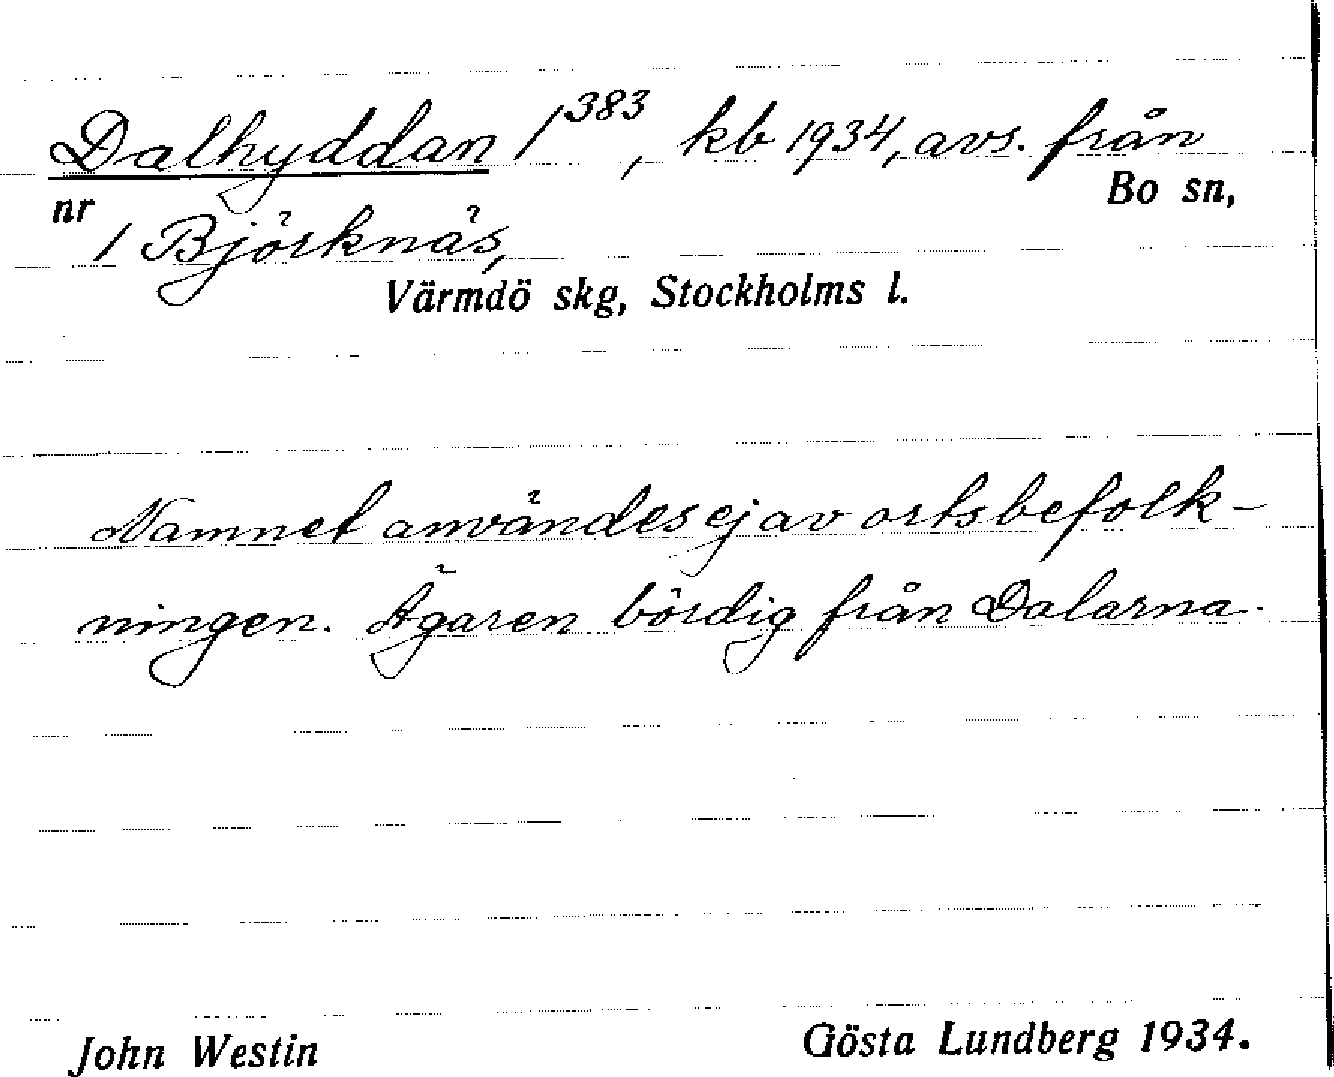 Dalhyddan 1³⁸³, kb 1934, avs. från
Bo sn,
nr 1 Björknäs,
Värmdö skg, Stockholms l.
Namnet användes ej av ortsbefolk-
ningen. Ägaren bördig från Dalarna.
John Westin Gösta Lundberg 1934.